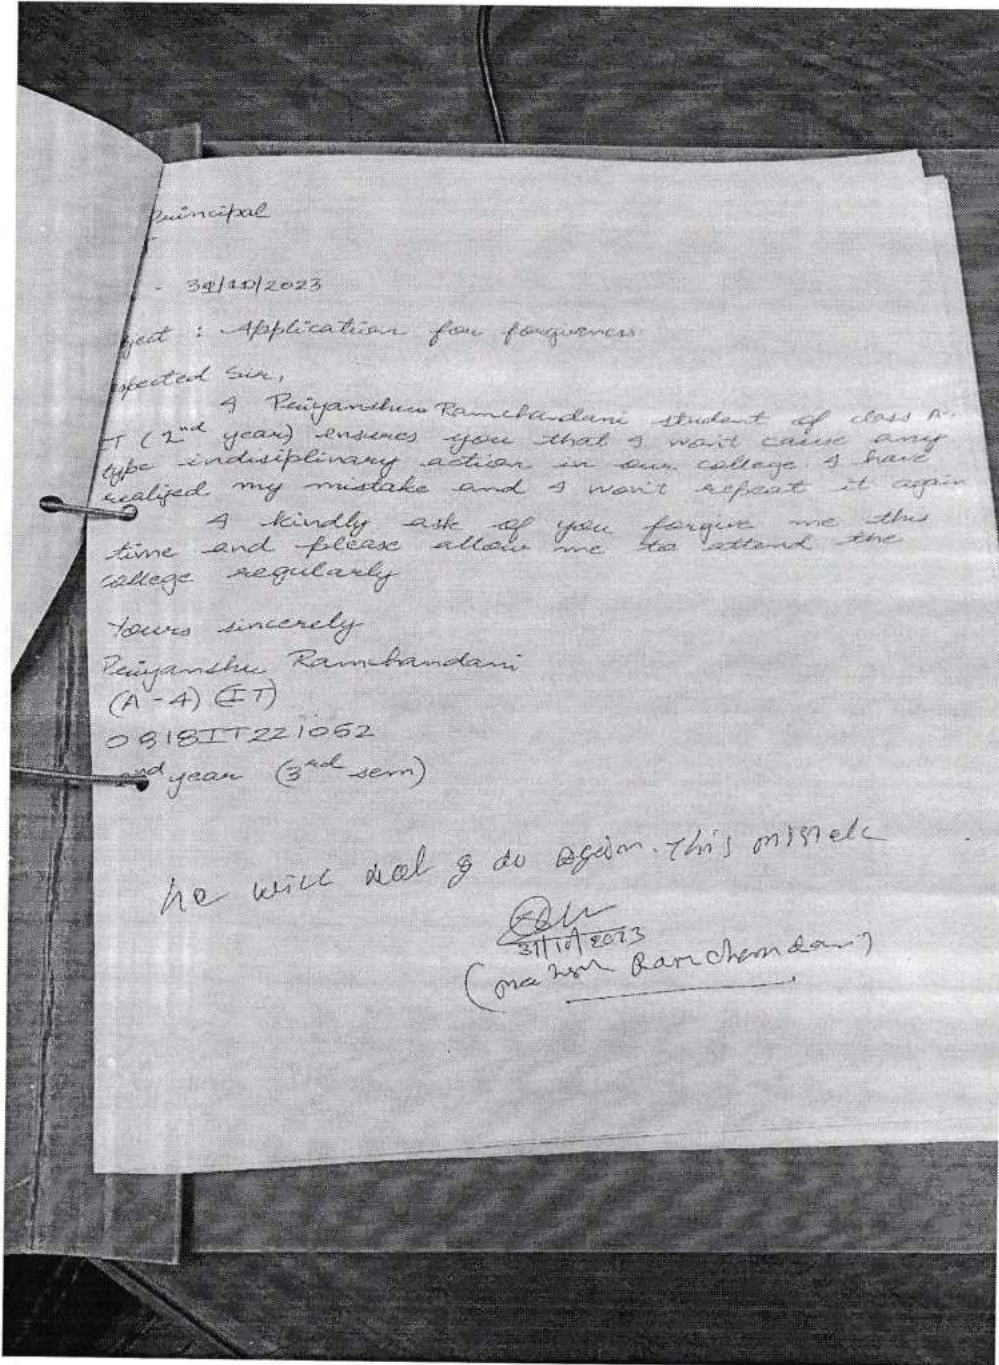 Principal
- 31/10/2023
ject : Application for forgiveness
spected Sir,
I Priyanshu Ramchandani student of class A-
IT (2nd year) ensures you that I won't cause any
type indisiplinary action in our college I have
realized my mistake and I won't repeat it again
I kindly ask of you forgive me this
time and please allow me to attend the
college regularly
Yours sincerely
Priyanshu Ramchandani
(A-4) (IT)
0818IT221062
2nd year (3rd sem)
he will do again. this
31/10/2023
Ramchandani)